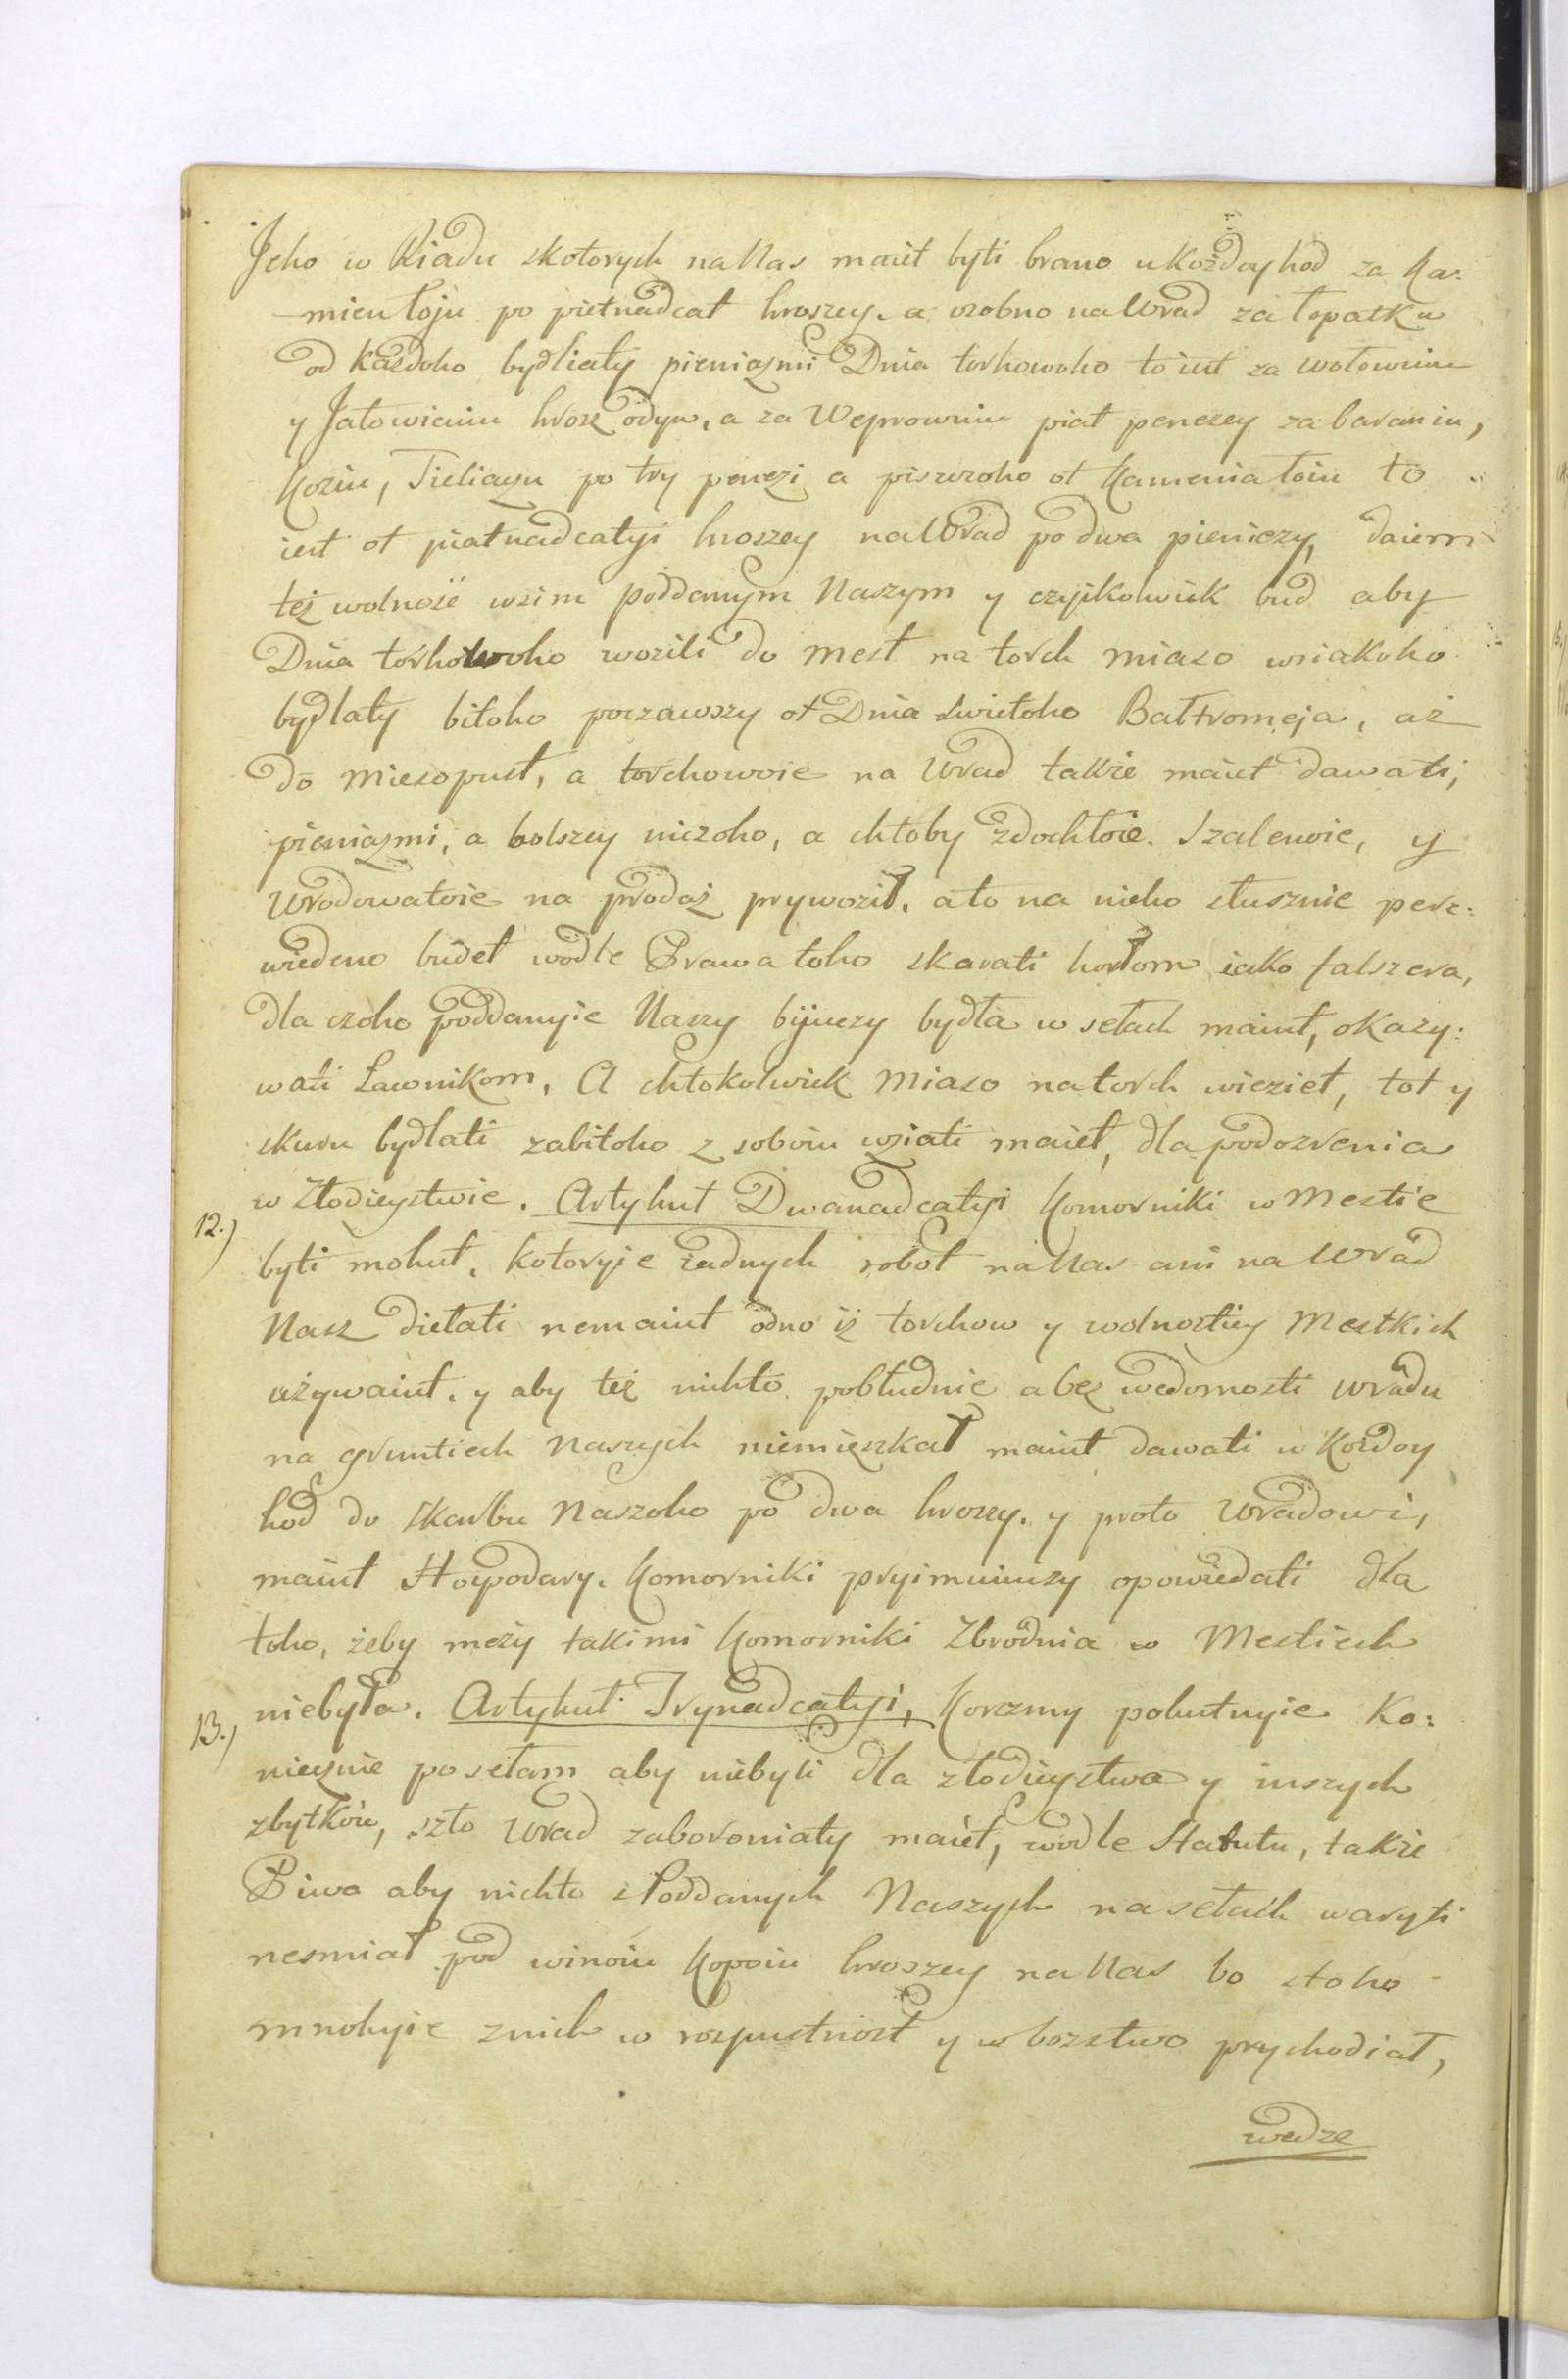 Jeho w Riadu skotorych na Nas maiet byti brano u Koždoy hod za Ka:
mien łoju po pietnadcat hroszey. a osobno na Wrad za łopatku
od każdoho bydliaty pieniazmi Dnia torhowoho to iest za wołowinu
y Jałowicinu hrosz odyn, a za Weprowinu piat penezey za baraniu,
Koziu, Tieliazu po try penezi a piszczoho ot Kamenia łoiu to
iest ot piatnadcatyi hroszey na Wrad po dwa pieniezy, daiem
też wolność wsim poddanym Naszym y czyikolwiek bud aby
Dnia torhowoho wozili do mest na torch miaso wsiakoho
bydlaty bitoho poczawszy ot Dnia swietoho Bałtromeja, aż
do miesopust, a torchowoie na Wrad także maiut dawati,
pieniazmi, a bolszey niczoho, a chtoby zdochłoie. Szalenoie, y
Wrodowatoie na prodaż prywoził. a to na nieho słusznie pere:
wiedeno budet wodle Prawa toho skarati horłom iako falszera,
dla czoho poddanyie Naszy bijuczy bydła w sełach maiut, okazy:
wati Ławnikom. A chtokolwiek miaso na torch wieziet, tot y
skuru bydlati zabitoho z soboiu wziati maiet, dla podozrenia
w złodieystwie. Artykuł Dwanadcatyi Komorniki w Mestie
12.)
byti mohut, kotoryie żadnych robot na Nas ani na Wrad
Nasz diełati nemaiut odno iż torchow y wolnostiey Mestkich
używaiut. y aby też nichto pobłudnie a bez wedomosti wradu
na gruntiech Naszych niemieszkał maiut dawati w Kożdoy
hod do skarbu Naszoho po dwa hroszy. y proto Wradowi,
maiut Hospodary. Komorniki pryimuiuczy opowiedati dla
toho, żeby meży takimi Komorniki Zbrodnia w Mestiech
niebyła. Artykuł Trynadcatyi, Korczmy pokutnyie Ko:
13.)
niecznie po sełam aby niebyli dla złodieystwa y inszych
zbytkow, szto Wrad zaboroniaty maiet, wodle Statutu, także
Piwa aby nichto z Poddanych Naszych na sełach waryti
nesmiał pod winoiu Kopoiu hroszey na Nas bo stoho
mnohyie znich w rozpustnost y w bozstwo prychodiat,
wedze